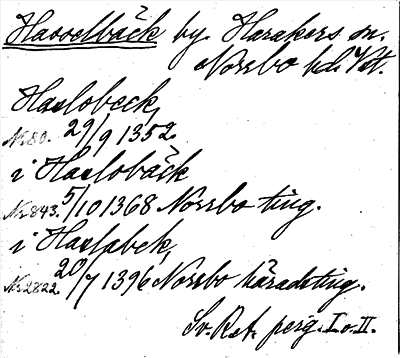 Hasselbäck by Harakers sn.
Norrbo hd. Vstm.
Haslobeck,
Nr 80. 29/9 1352.
i Haslobäck
Nr 843. 5/10 1368 Norrbo ting.
i Haslabek,
Nr 2822 20/7 1396 Norrbo häradsting.
Sv. Rst. perg. I o. II.